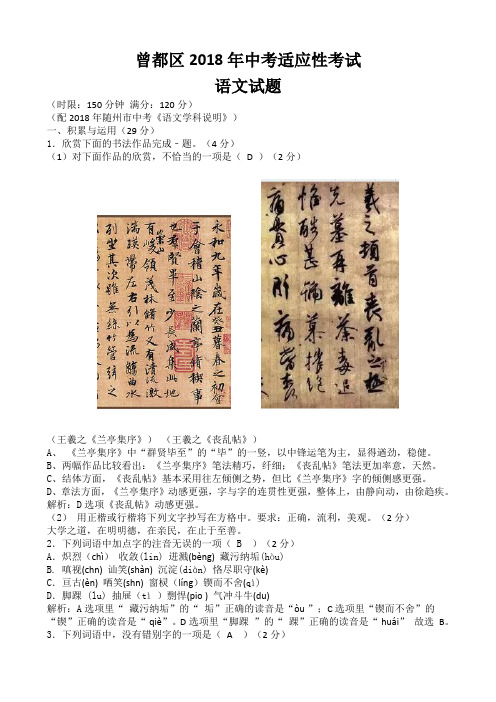 曾都区2018年中考适应性考试
语文试题
(时限：150分钟 满分：120分)
(配2018年随州市中考《语文学科说明》)
一、积累与运用(29分)
1．欣赏下面的书法作品完成﹣题。(4分)
(1)对下面作品的欣赏，不恰当的一项是( D )(2分)
永和九年岁在癸丑暮春之初会
于会稽山阴之兰亭修禊事
也群贤毕至少长咸集此地
有崇山峻领茂林修竹又有清流激
湍映带左右引以为流觞曲水
列坐其次虽无丝竹管弦之
羲之顿首丧乱之极
先墓再离荼毒追
惟酷甚号慕摧绝
痛贯心肝痛当奈
(王羲之《兰亭集序》) (王羲之《丧乱帖》)
A、 《兰亭集序》中“群贤毕至”的“毕”的一竖，以中锋运笔为主，显得遒劲，稳健。
B、两幅作品比较看出：《兰亭集序》笔法精巧，纤细；《丧乱帖》笔法更加率意，天然。
C、结体方面，《丧乱帖》基本采用往左倾侧之势，但比《兰亭集序》字的倾侧感更强。
D、章法方面，《兰亭集序》动感更强，字与字的连贯性更强，整体上，由静向动，由徐趋疾。
解析：D选项《丧乱帖》动感更强。
(2) 用正楷或行楷将下列文字抄写在方格中。要求：正确，流利，美观。(2分)
大学之道，在明明德，在亲民，在止于至善。
2．下列词语中加点字的注音无误的一项( B )(2分)
A．炽烈(chì) 收敛(lin) 迸溅(bèng) 藏污纳垢(hòu)
B. 嗔视(chn) 讪笑(shàn) 沉淀(diàn) 恪尽职守(kè)
C．亘古(èn) 哂笑(shn) 窗棂(líng) 锲而不舍(qì)
D．脚踝 (lu) 抽屉(tì )剽悍(pio ) 气冲斗牛(du)
解析：A选项里“ 藏污纳垢”的“ 垢”正确的读音是“òu ”；C选项里“锲而不舍”的
“锲”正确的读音是“ qiè”。D选项里“脚踝 ”的“ 踝”正确的读音是“ huái” 故选 B。
3．下列词语中，没有错别字的一项是( A )(2分)